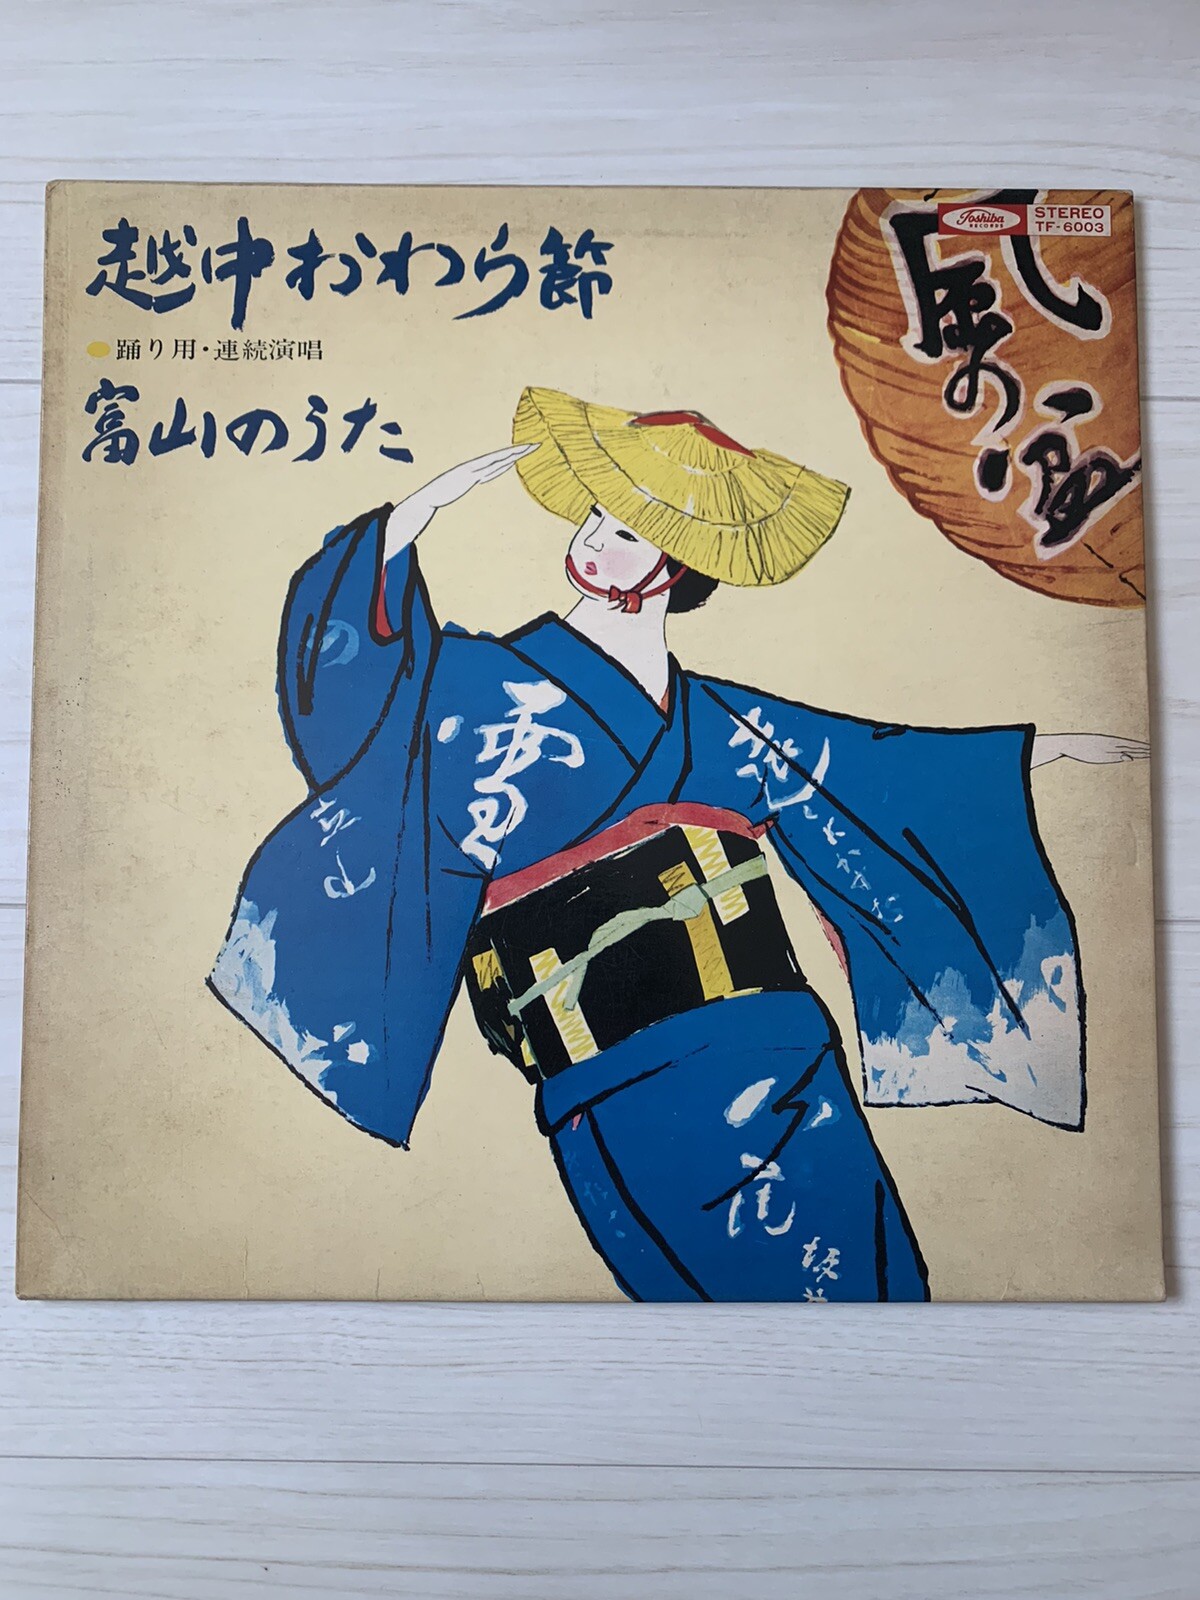 越中おわら節
●踊り用・連続演唱
富山のうた
Toshiba
RECORDS
STEREO
TF-6003
風の盆
の
立山
雪
八尾
坂